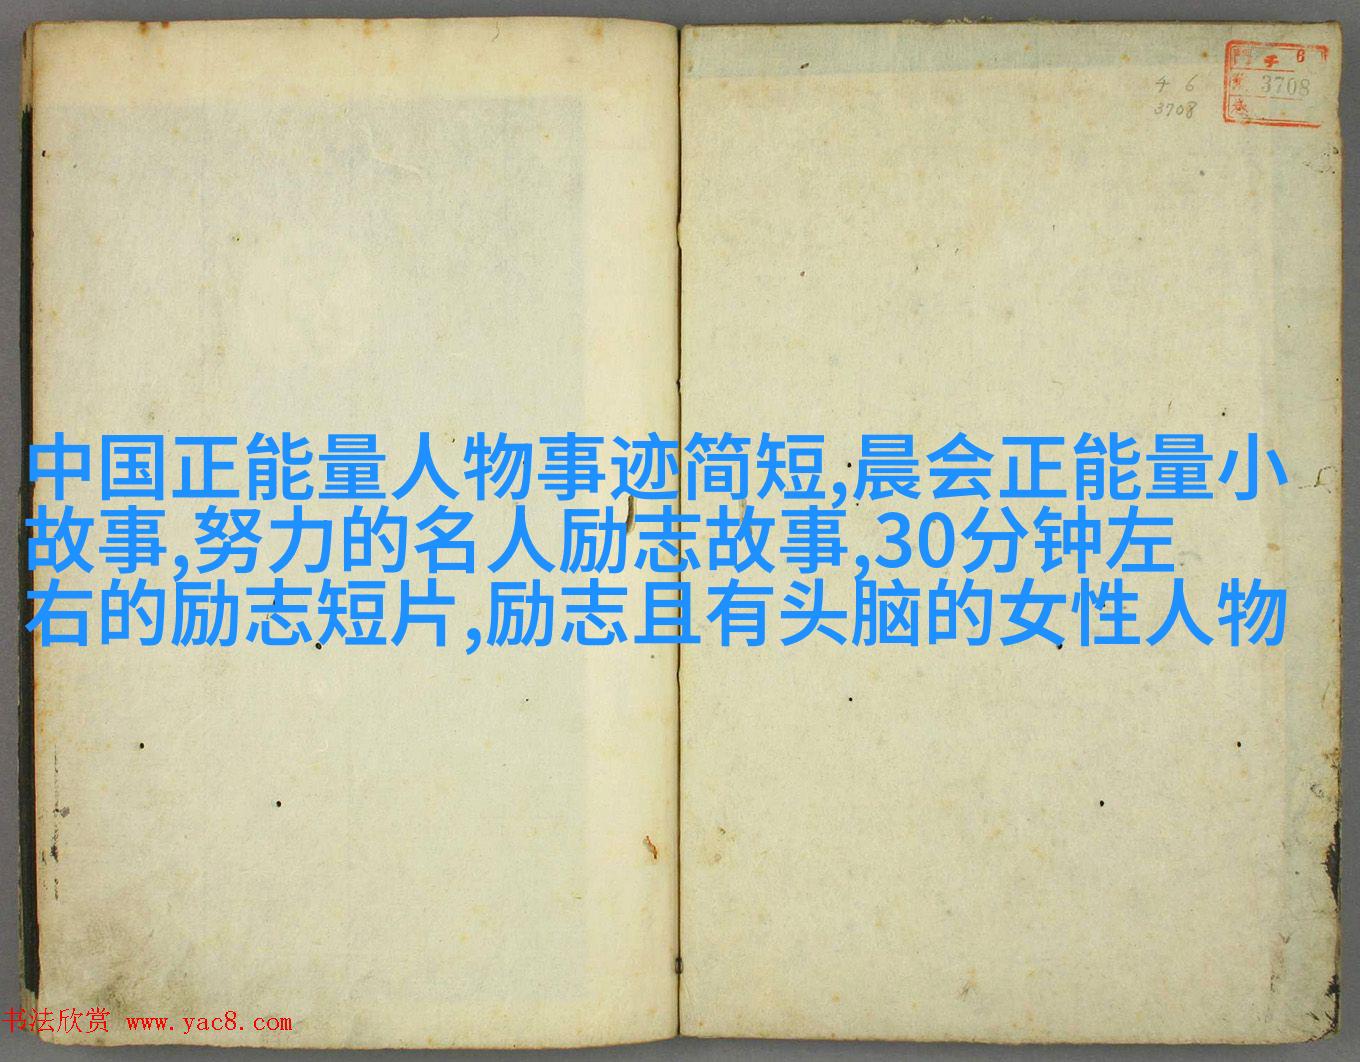 4 6
3708
6
3708
中国正能量人物事迹简短,晨会正能量小
故事,努力的名人励志故事,30分钟左
右的励志短片,励志且有头脑的女性人物
书法欣赏 www.yac8.com